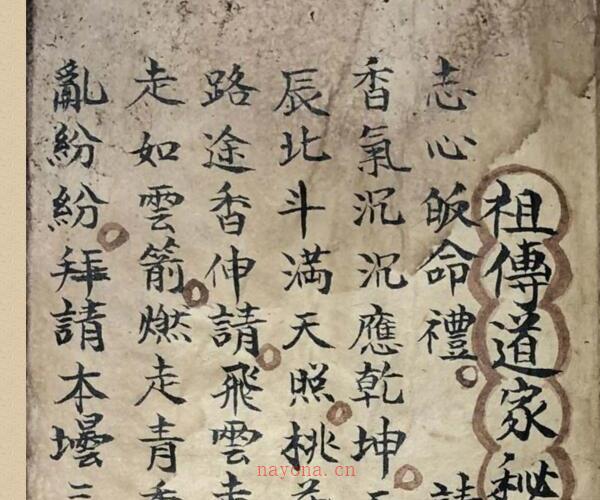 祖傳道家秘
志心皈命禮
香氣沉沉應乾坤
辰北斗滿天照桃
路途香伸請飛雲走
走如雲箭燃走青
亂紛紛拜請本壜三
nayona.cn